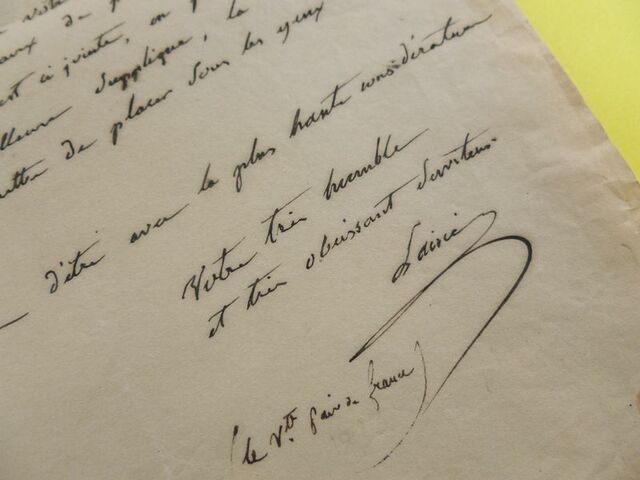 votre
aux de p
est ci jointe, on p
lleure supplique, la
ettre de placer sous les yeux
d'être avec la plus haute considération
Votre très humble
et très obéissant serviteur.
Lainé
(le Vte pair de france)